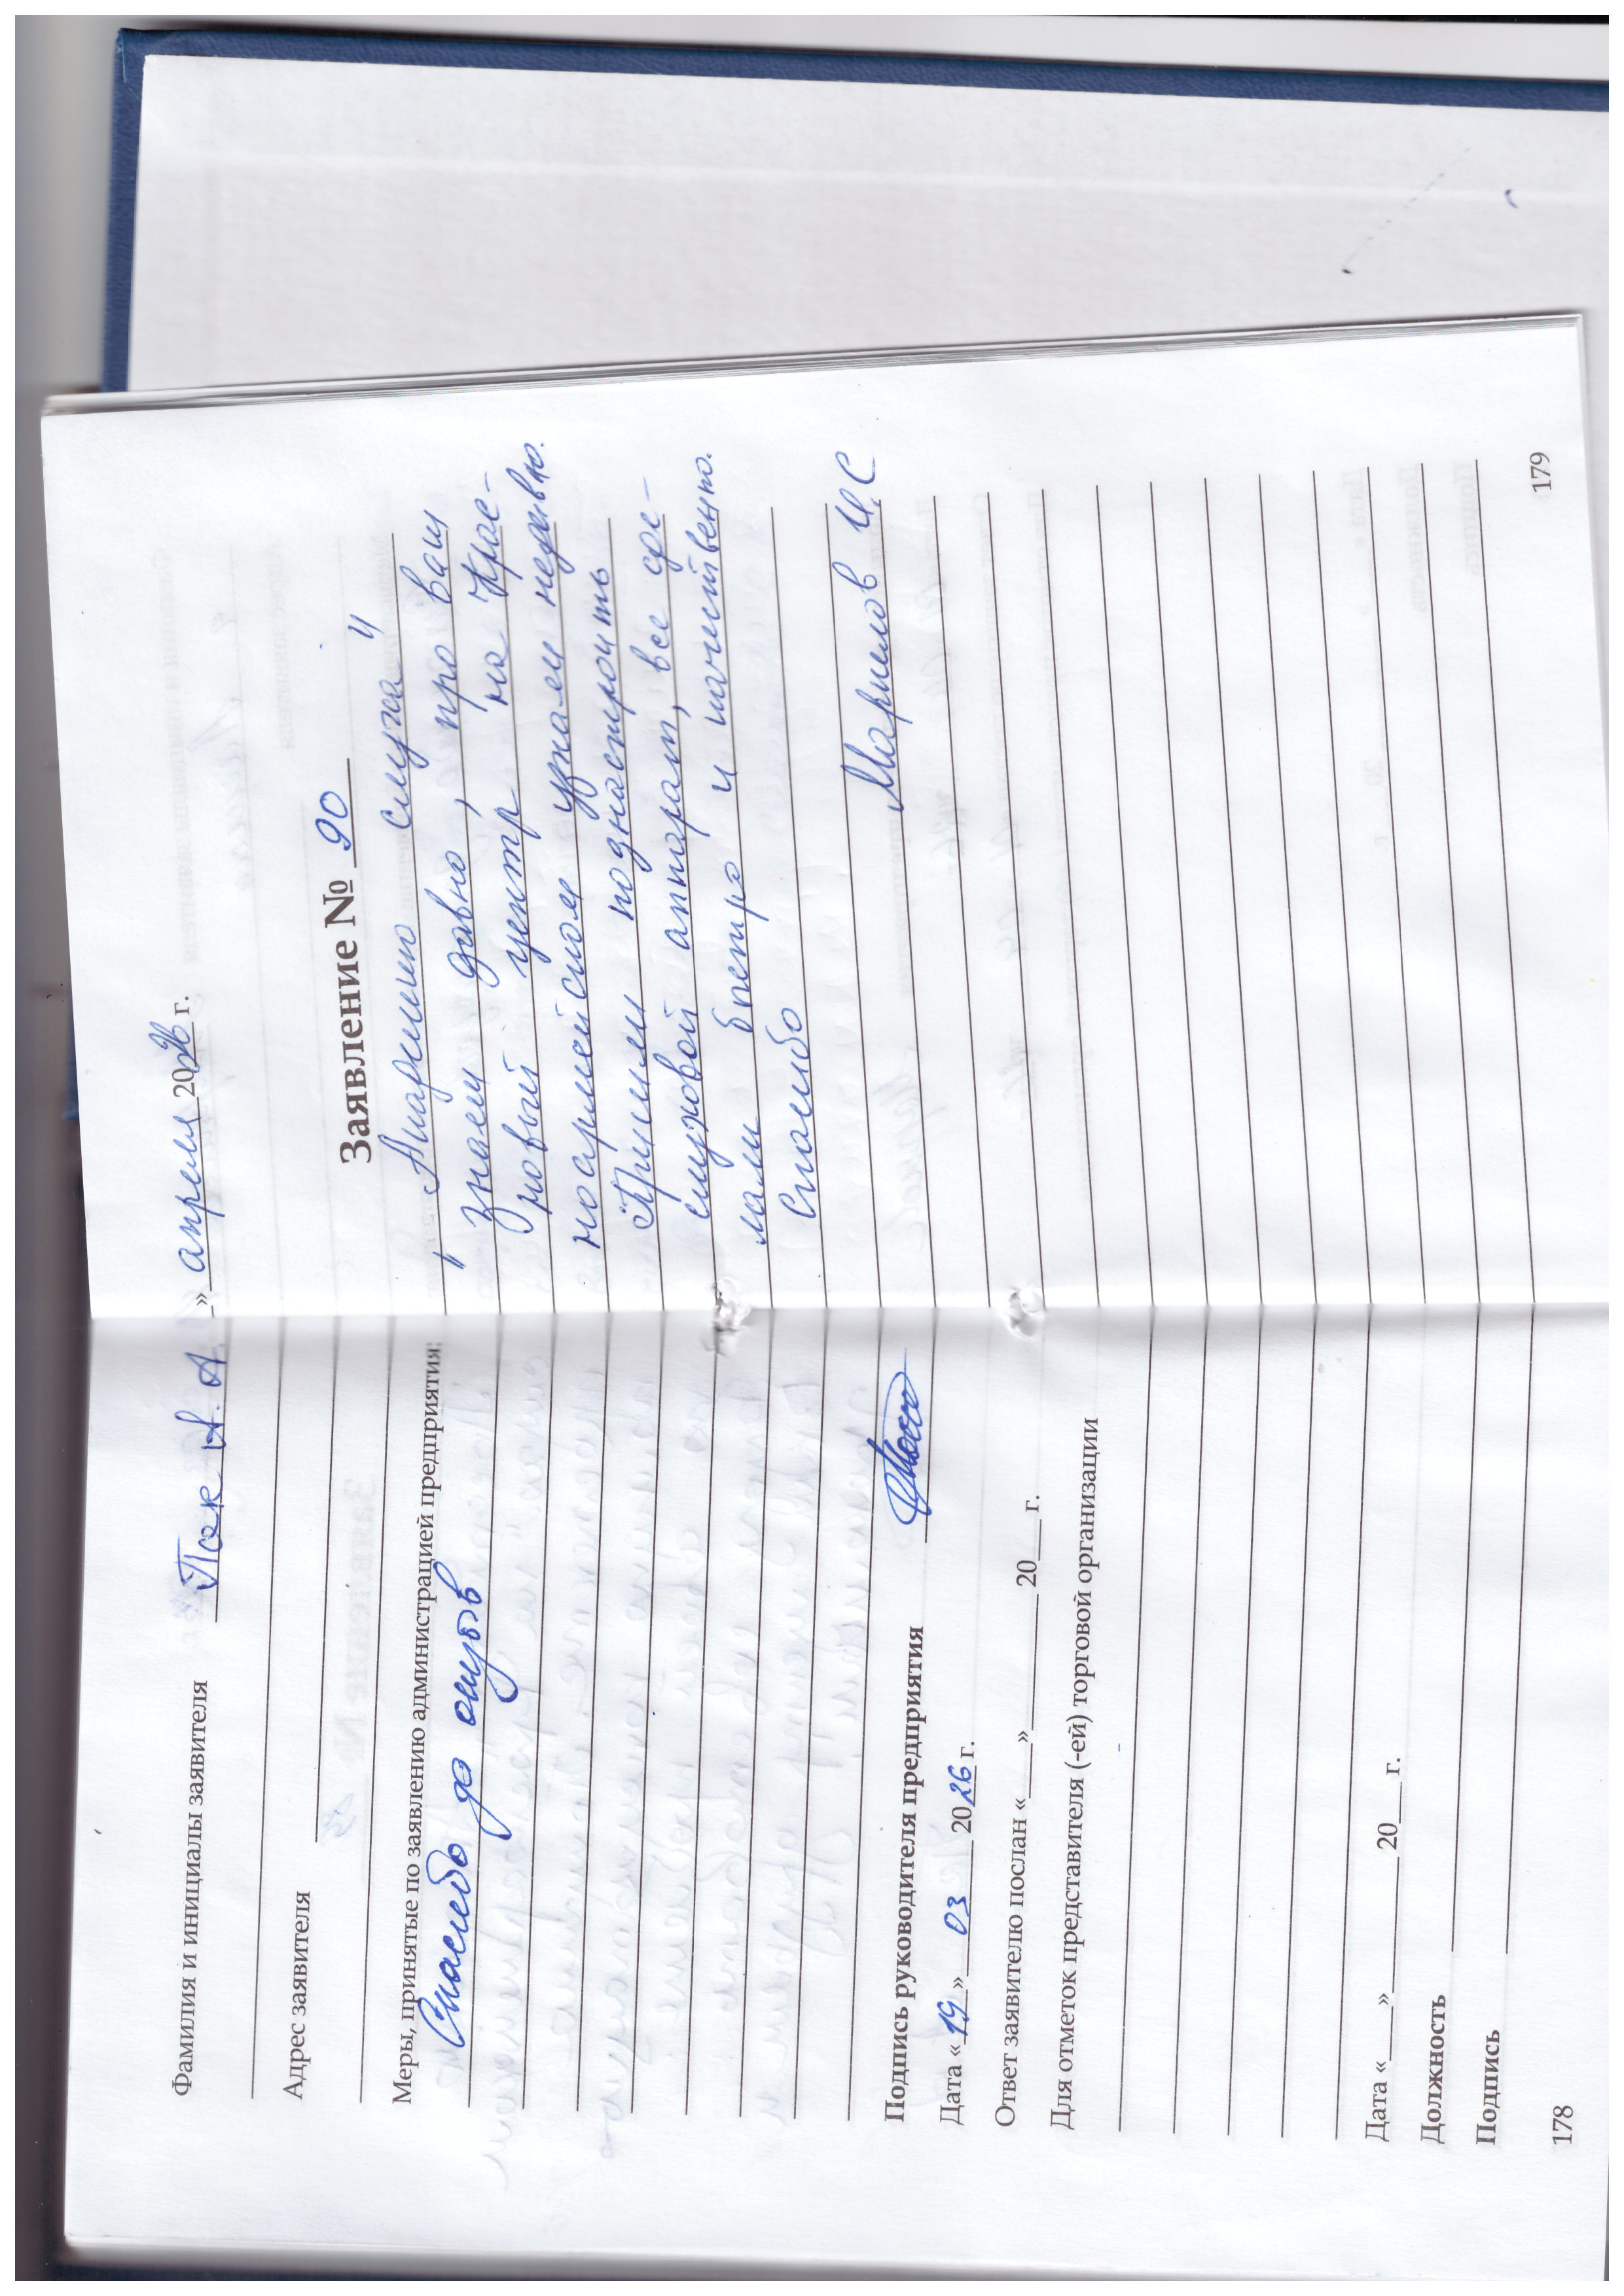 Фамилия и инициалы заявителя Пак А. А
Адрес заявителя
Меры, принятые по заявлению администрацией предприятия:
Спасибо за отзыв
Подпись руководителя предприятия
Дата «19» 03 2026 г.
Ответ заявителю послан «___»________ 20___г.
Для отметок представителя (-ей) торговой организации
Дата «___»________ 20___г.
Должность
Подпись
178
» апреля 2026 г.
Заявление № 90
" Академию слуха "
знаем давно, про ваш
новый центр на Крас-
ноармейском узнали недавно.
Пришли поднастроить
слуховой аппарат, все сде-
лали быстро и качественно.
Спасибо
Маримов И.С
179